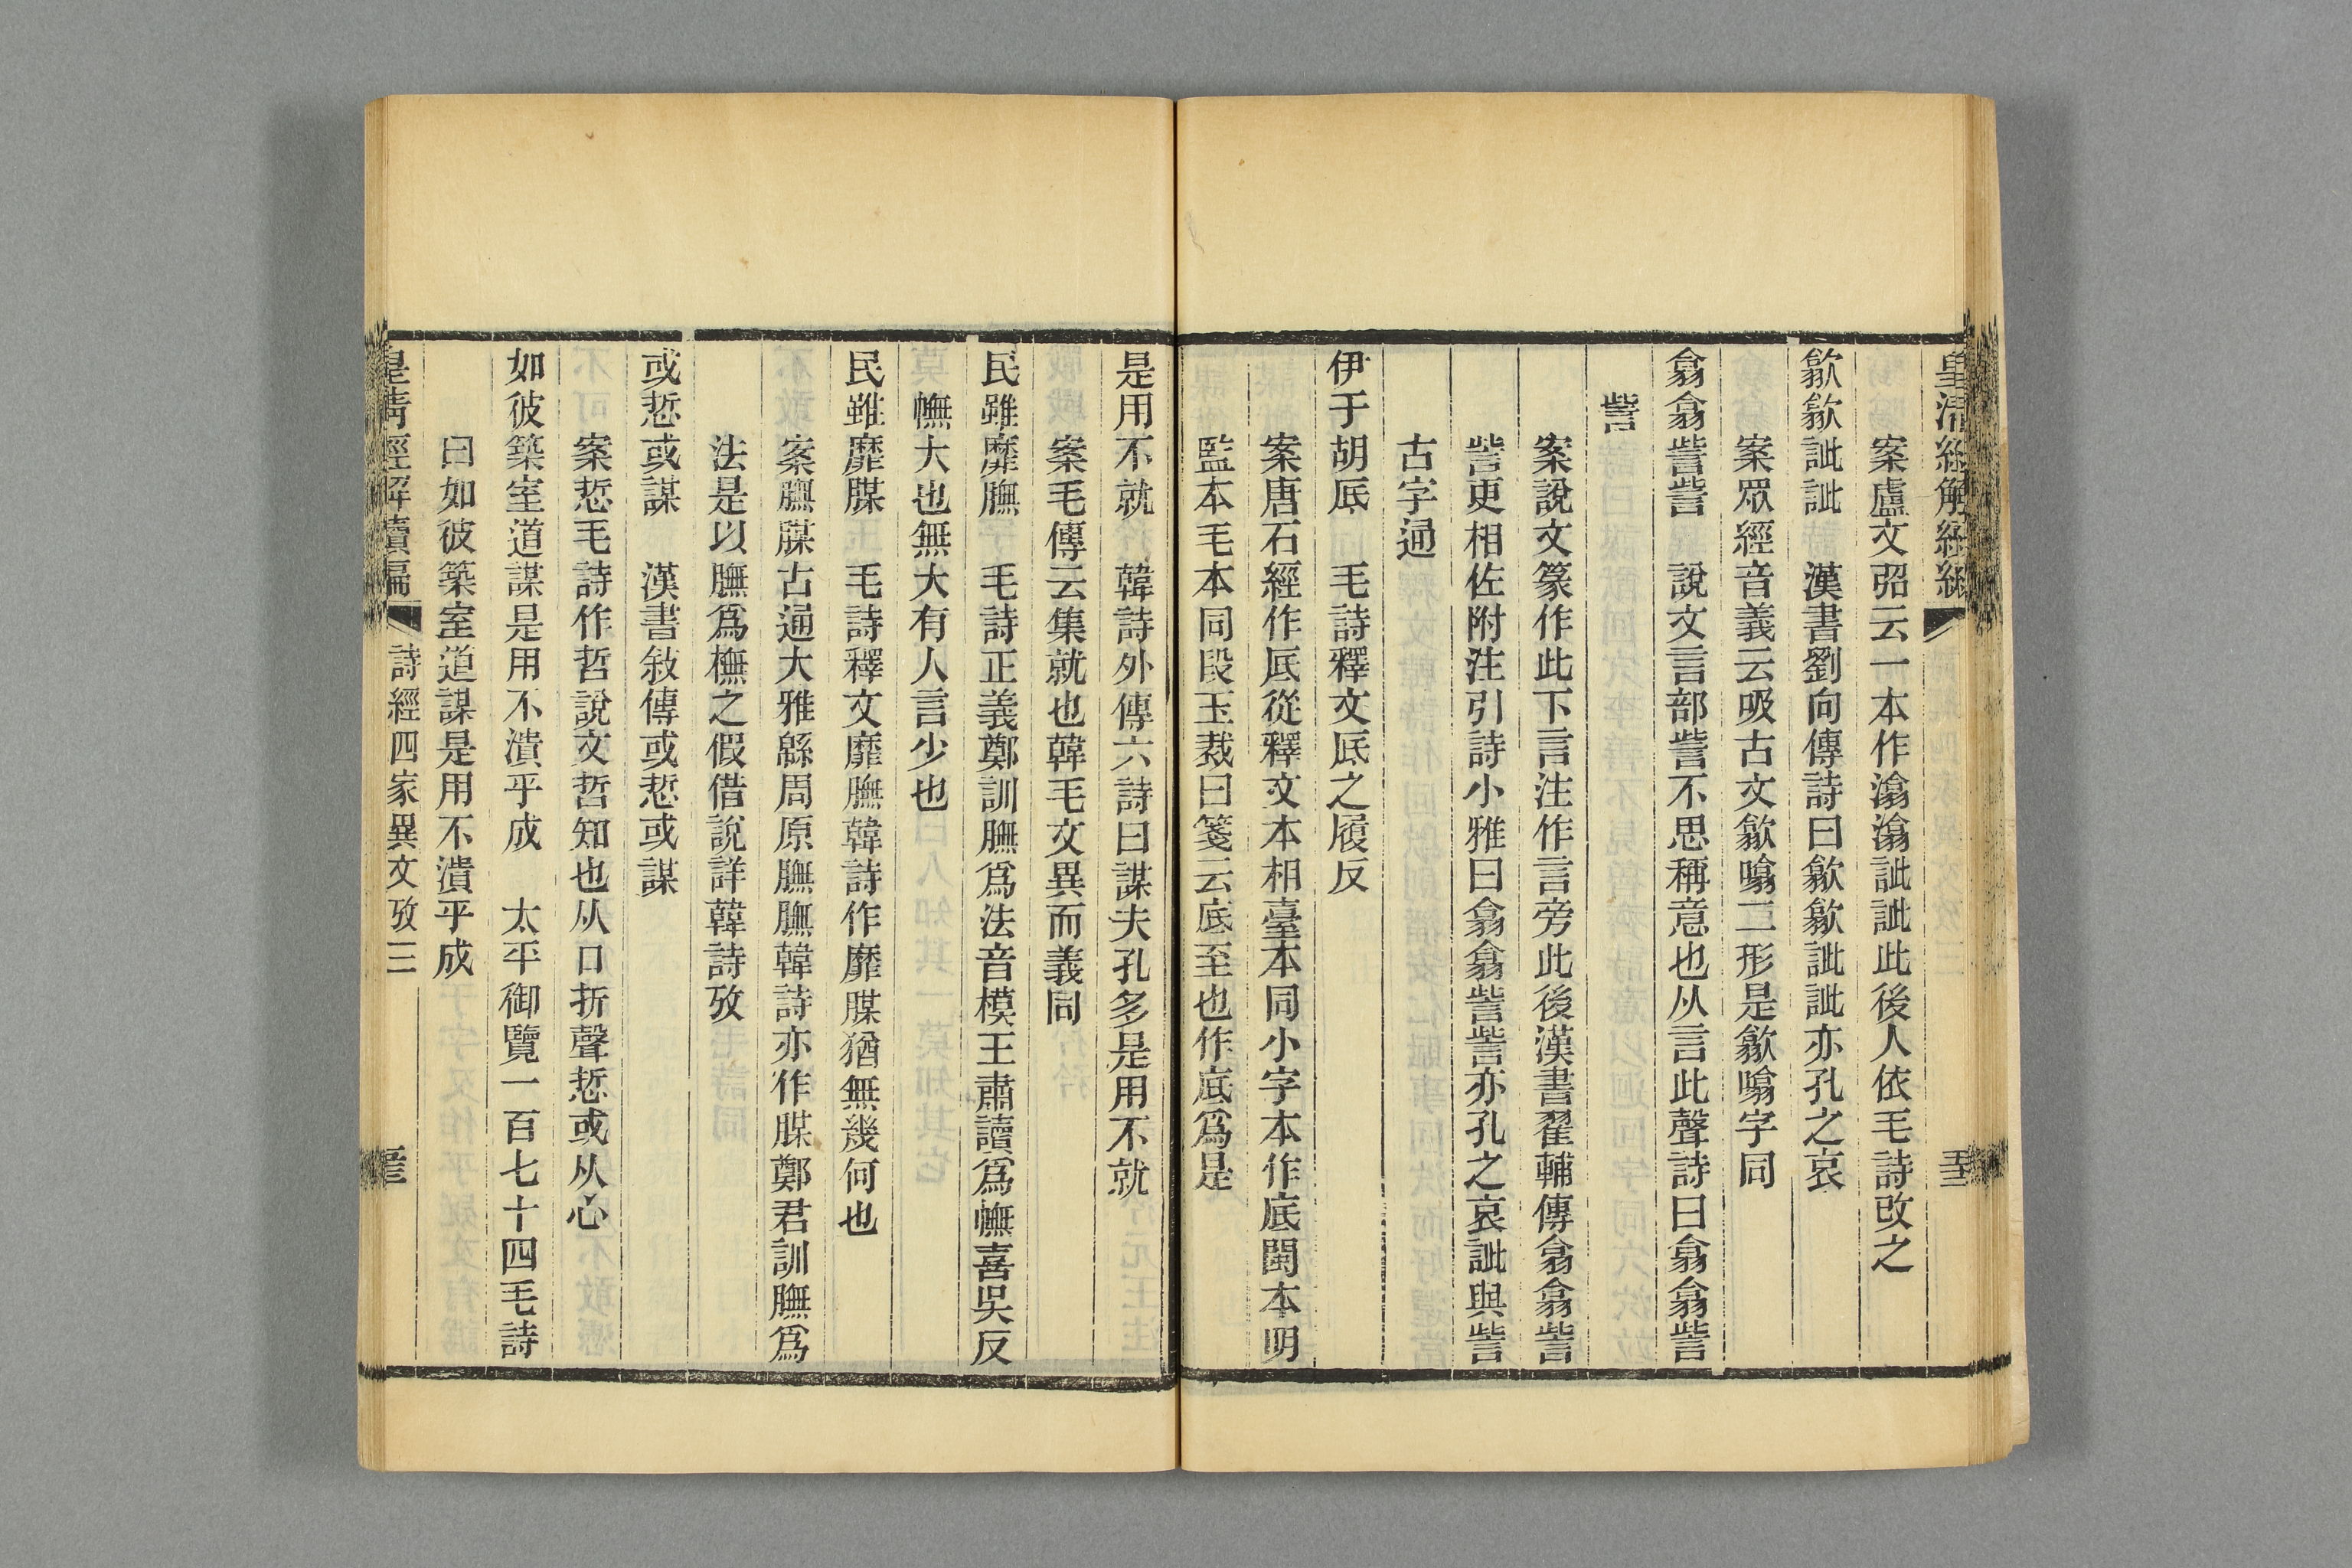 皇清經解續編
案盧文弨云一本作潝潝訿訿此後人依毛詩改之
歙歙訿訿　漢書劉向傳詩曰歙歙訿訿亦孔之哀
案眾經音義云吸古文歙噏二形是歙噏字同
翕翕呰呰　說文言部呰不思稱意也从言此聲詩曰翕翕呰
呰
案說文篆作此下言注作言旁此後漢書翟輔傳翕翕呰
呰更相佐附注引詩小雅曰翕翕呰呰亦孔之哀訿與呰
古字通
伊于胡底　毛詩釋文底之履反
案唐石經作底從釋文本相臺本同小字本作底閩本明
監本毛本同段玉裁曰箋云底至也作底爲是
是用不就　韓詩外傳六詩曰謀夫孔多是用不就
案毛傳云集就也韓毛文異而義同
民雖靡膴　毛詩正義鄭訓膴爲法音模王肅讀爲幠喜吳反
幠大也無大有人言少也
民雖靡腜　毛詩釋文靡膴韓詩作靡腜猶無幾何也
案膴腜古通大雅緜周原膴膴韓詩亦作腜鄭君訓膴爲
法是以膴爲橅之假借說詳韓詩攷
或悊或謀　漢書敍傳或悊或謀
案悊毛詩作哲說文哲知也从口折聲悊或从心
如彼築室道謀是用不潰乎成　太平御覽一百七十四毛詩
曰如彼築室道謀是用不潰乎成
皇清經解續編　詩經四家異文攷三